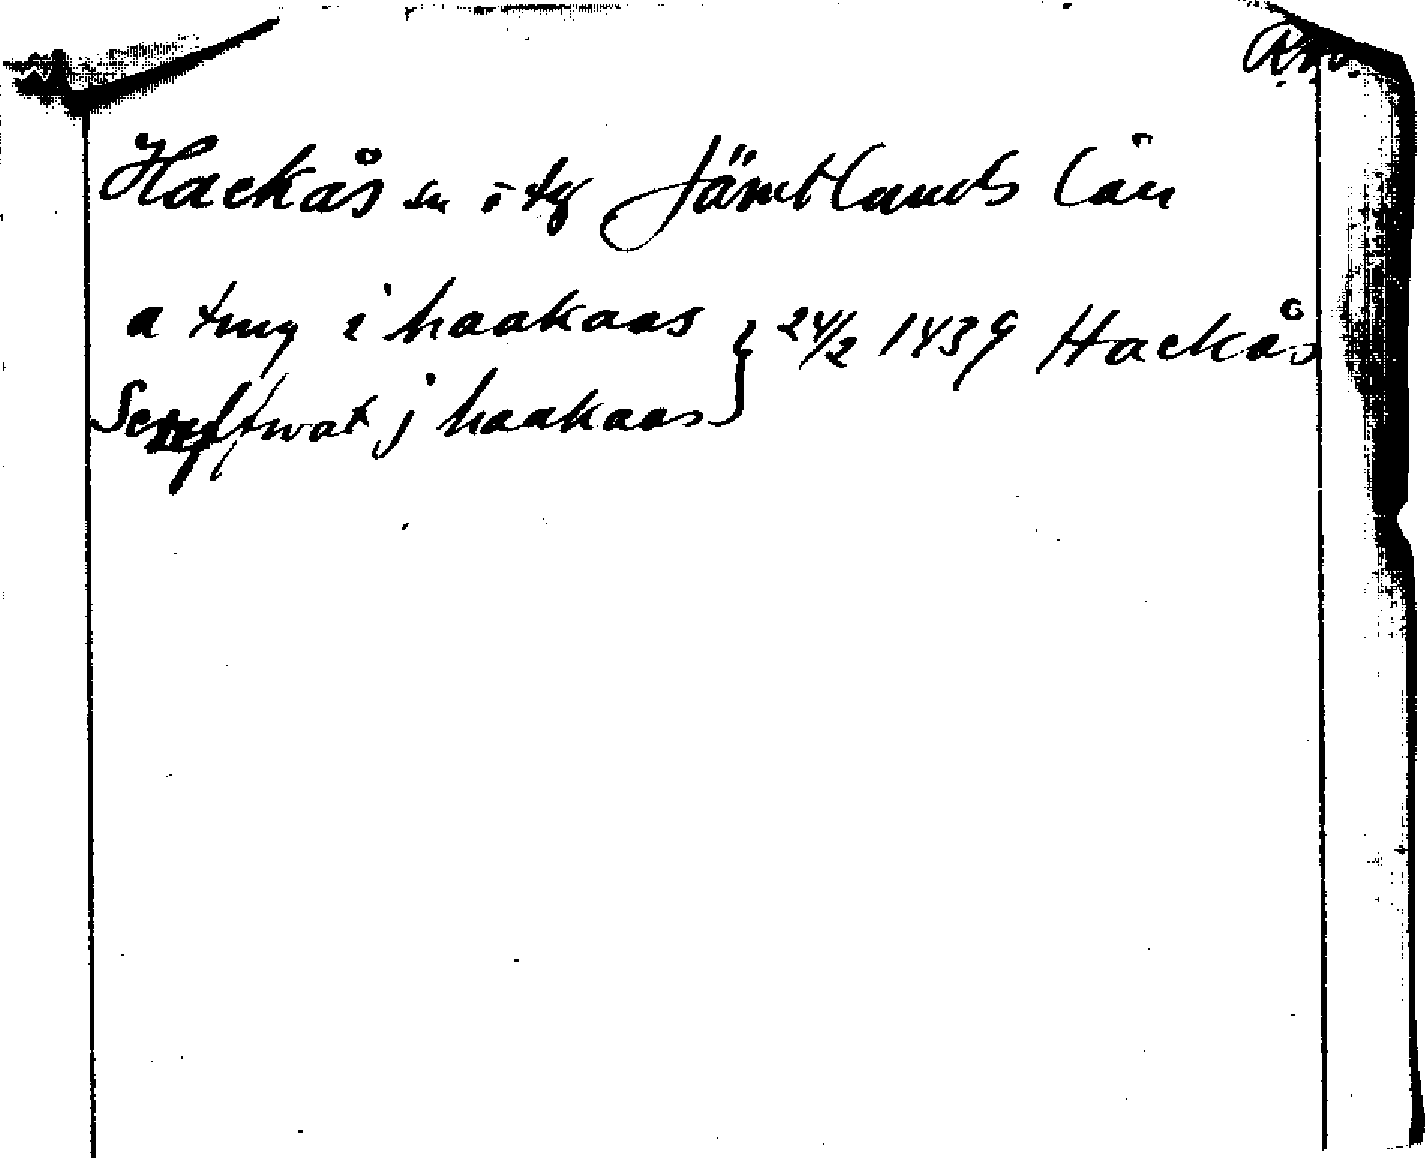 Rao.
Hackås sn o tg Jämtlands län
a ting i haakaas } 24/2 1439 Hackås
Screffwat j haakaas